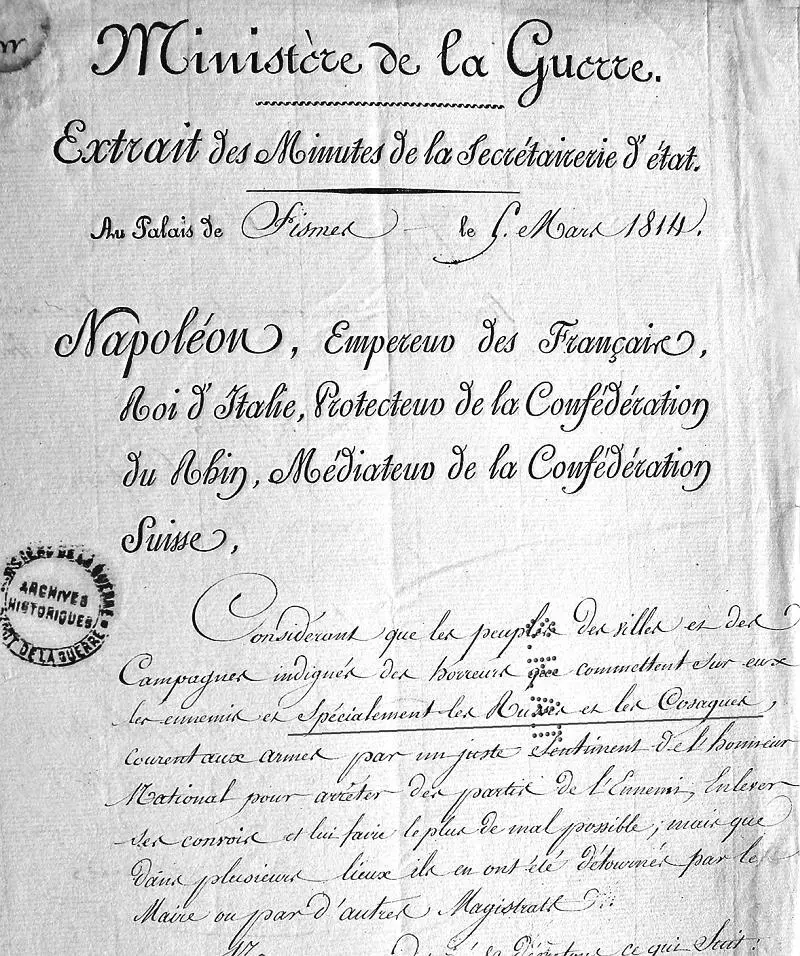 Ministère de la Guerre.
Extrait des Minutes de la Secrétairerie d'état.
Au Palais de Fismes le 5. Mars 1814.
Napoléon, Empereur des Français,
Roi d'Italie, Protecteur de la Confédération
du Rhin, Médiateur de la Confédération
Suisse,
ARCHIVES
HISTORIQUES
DE LA GUERRE
Considérant que les peuples des villes et des
Campagnes indignés des horreurs que commettent sur eux
les ennemis et spécialement les Russes et les Cosaques,
courent aux armes par un juste Sentiment de l'honneur
National pour arrêter des partis de l'Ennemi, Enlever
ses convois et lui faire le plus de mal possible; mais que
dans plusieurs lieux ils en ont été détournés par le
Maire ou par d'autres Magistrats
ce qui Suit: